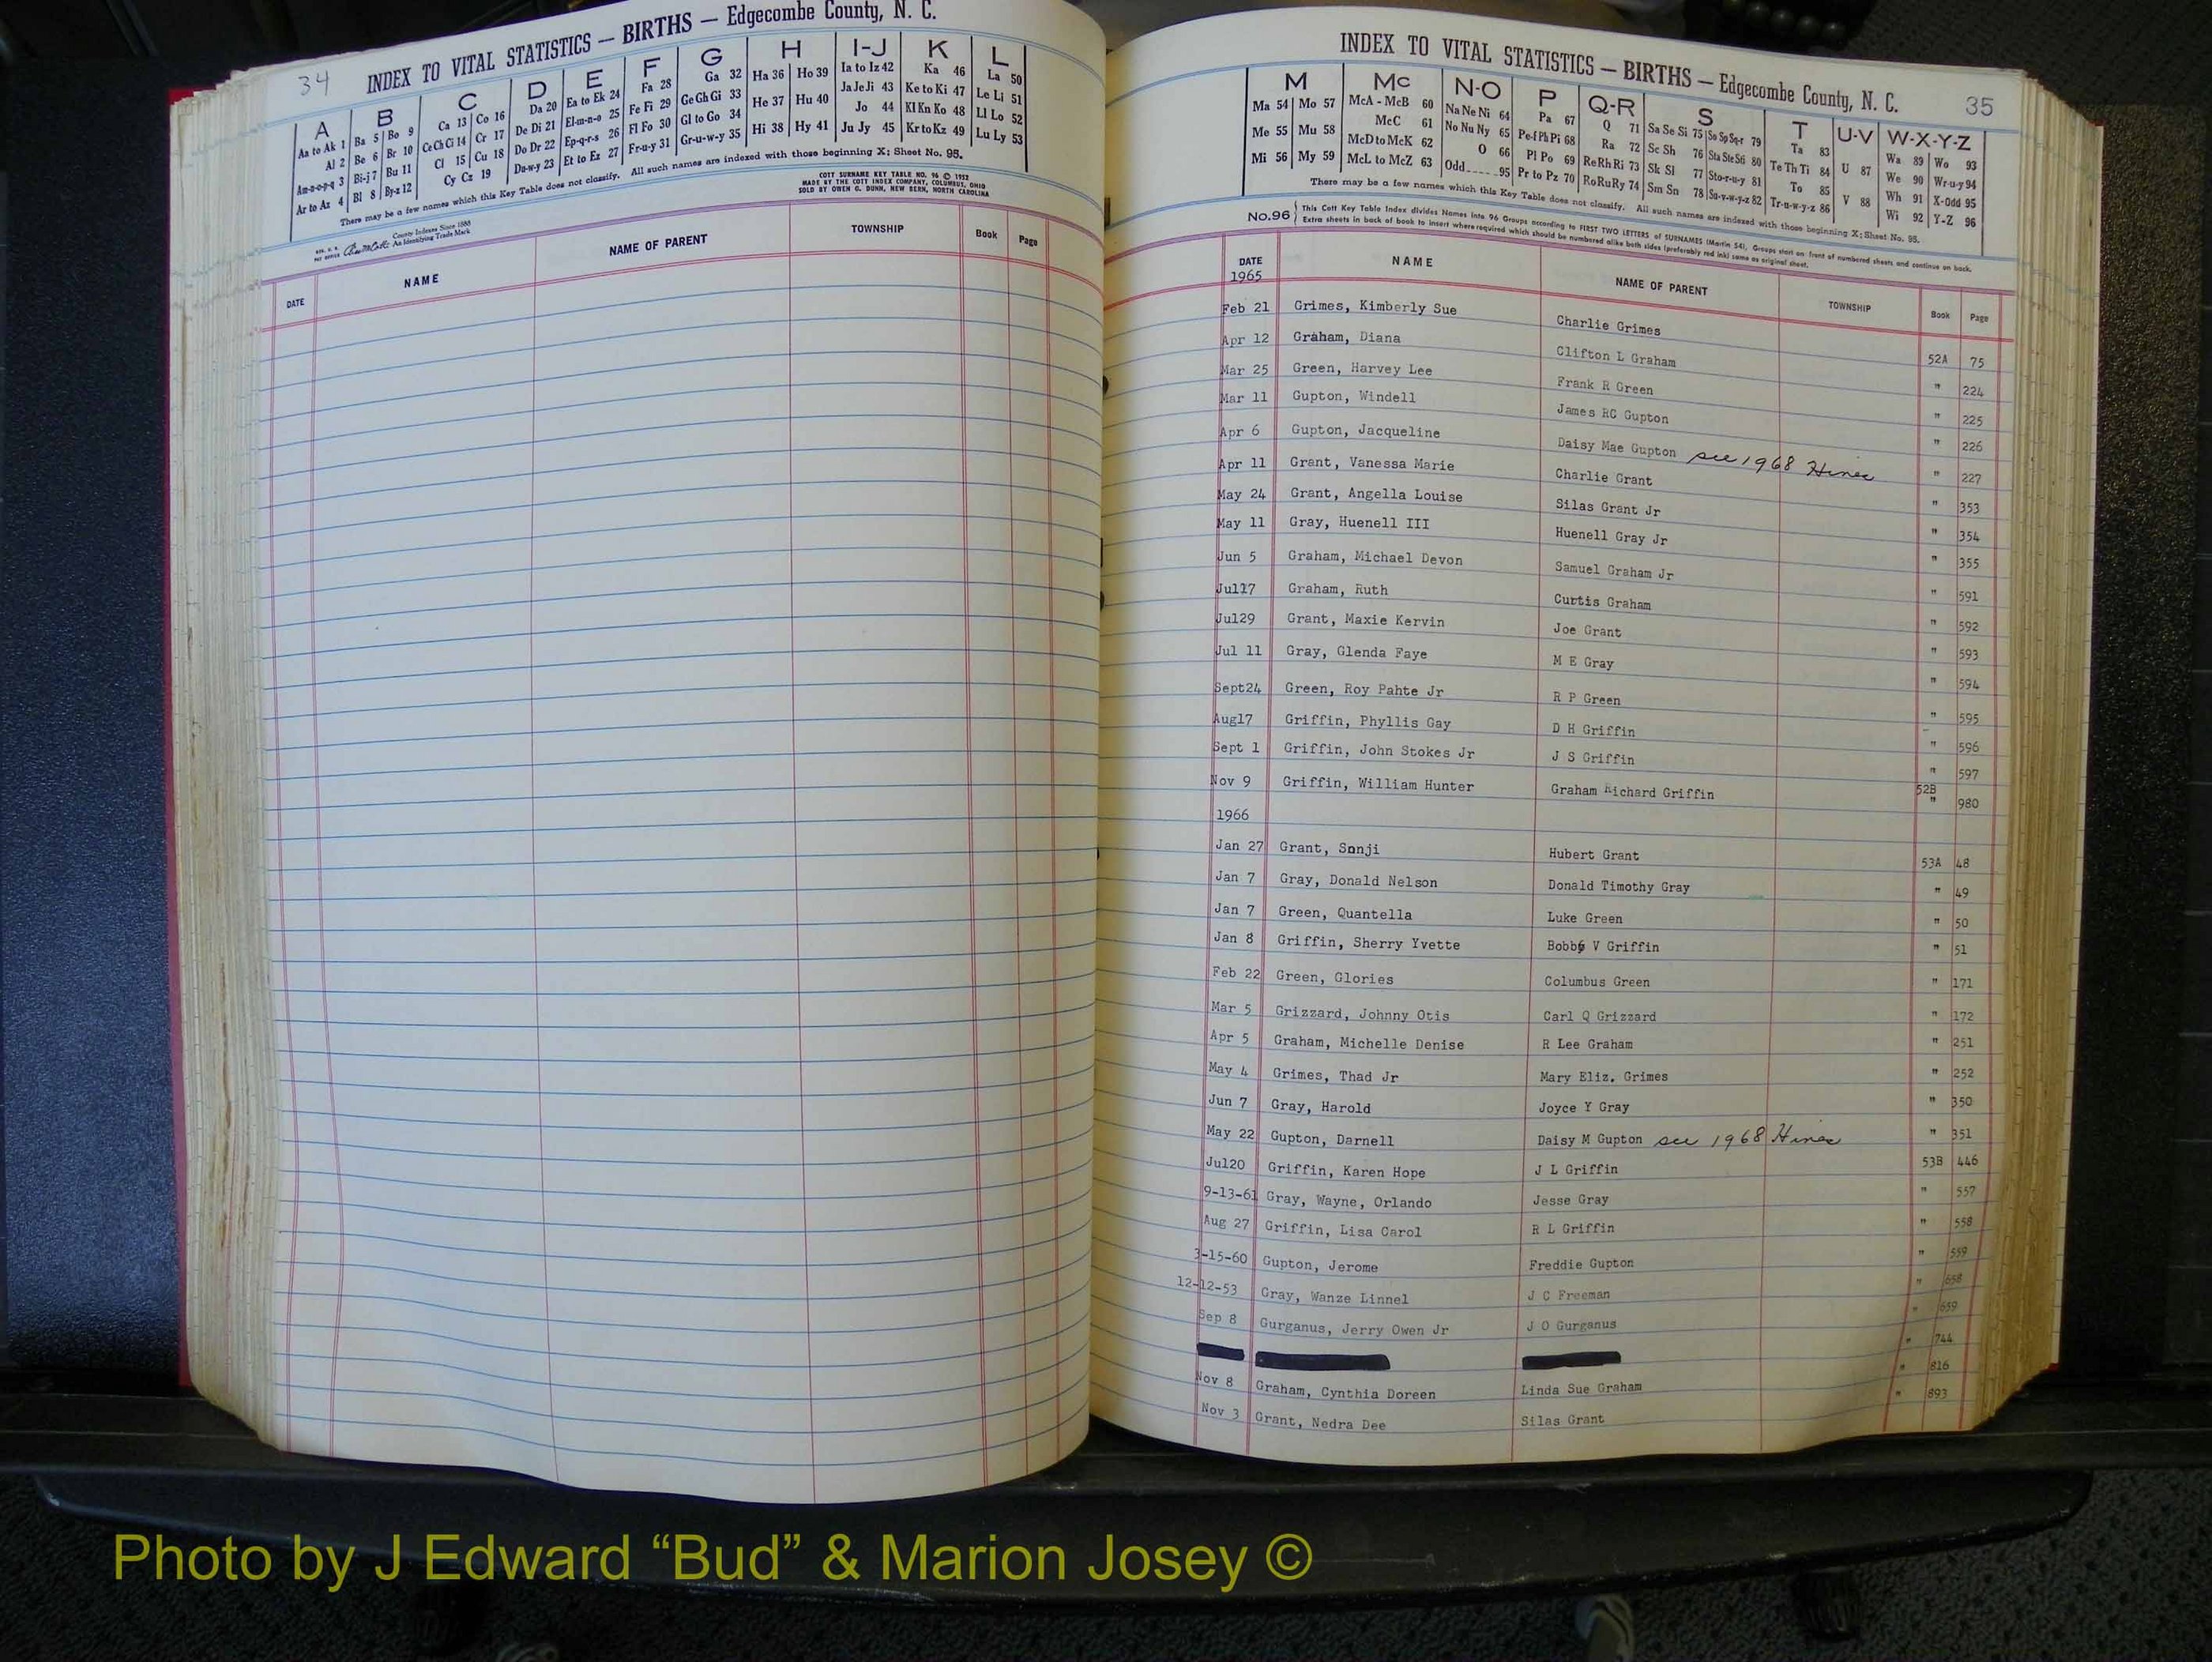 34
INDEX TO VITAL STATISTICS — BIRTHS — Edgecombe County, N. C.
A B C D E F G H I-J K L
Aa to Ak 1 Ba 5 Bo 9 Ca 13 Co 16 Da 20 Ea to Ek 24 Fa 28 Ga 32 Ha 36 Ho 39 Ia to Iz 42 Ka 46 La 50
Al 2 Be 6 Br 10 Ce Ch Ci 14 Cr 17 De Di 21 El-m-n-o 25 Fe Fi 29 Ge Gh Gi 33 He 37 Hu 40 Ja Je Ji 43 Ke to Ki 47 Le Li 51
Am-n-o-p-q 3 Bi-j 7 Bu 11 Cl 15 Cu 18 Do Dr 22 Ep-q-r-s 26 Fl Fo 30 Gl to Go 34 Hi 38 Hy 41 Jo 44 Kl Kn Ko 48 Ll Lo 52
Ar to Az 4 Bl 8 By-z 12 Cy Cz 19 Du-w-y 23 Et to Ez 27 Fr-u-y 31 Gr-u-w-y 35 Ju Jy 45 Kr to Kz 49 Lu Ly 53
There may be a few names which this Key Table does not classify. All such names are indexed with those beginning X; Sheet No. 95.
COTT SURNAME KEY TABLE NO. 96 © 1952
MADE BY THE COTT INDEX COMPANY, COLUMBUS, OHIO
SOLD BY OWEN G. DUNN, NEW BERN, NORTH CAROLINA
County Indexes Since 1888
An Identifying Trade Mark
DATE NAME NAME OF PARENT TOWNSHIP Book Page
INDEX TO VITAL STATISTICS — BIRTHS — Edgecombe County, N. C. 35
M Mc N-O P Q-R S T U-V W-X-Y-Z
Ma 54 Mo 57 McA - McB 60 Na Ne Ni 64 Pa 67 Q 71 Sa Se Si 75 So Sp Sq-r 79 Ta 83 U 87 Wa 89 Wo 93
Me 55 Mu 58 McC 61 No Nu Ny 65 Pe-f Ph Pi 68 Ra 72 Sc Sh 76 Sta Ste Sti 80 Te Th Ti 84 V 88 We 90 Wr-u-y 94
Mi 56 My 59 McD to McK 62 O 66 Pl Po 69 Re Rh Ri 73 Sk Sl 77 Sto-r-u-y 81 To 85 Wh 91 X-Odd 95
McL to McZ 63 Odd 95 Pr to Pz 70 Ro Ru Ry 74 Sm Sn 78 Su-v-w-y-z 82 Tr-u-w-y-z 86 Wi 92 Y-Z 96
There may be a few names which this Key Table does not classify. All such names are indexed with those beginning X; Sheet No. 95.
No.96 This Cott Key Table Index divides Names into 96 Groups according to FIRST TWO LETTERS of SURNAMES (Martin 54). Groups start on front of numbered sheets and continue on back.
Extra sheets in back of book to insert where required which should be numbered alike both sides (preferably red ink) same as original sheet.
DATE NAME NAME OF PARENT TOWNSHIP Book Page
1965
Feb 21 Grimes, Kimberly Sue Charlie Grimes 52A 75
Apr 12 Graham, Diana Clifton L Graham " 224
Mar 25 Green, Harvey Lee Frank R Green " 225
Mar 11 Gupton, Windell James RC Gupton " 226
Apr 6 Gupton, Jacqueline Daisy Mae Gupton see 1968 Hines " 227
Apr 11 Grant, Vanessa Marie Charlie Grant " 353
May 24 Grant, Angella Louise Silas Grant Jr " 354
May 11 Gray, Huenell III Huenell Gray Jr " 355
Jun 5 Graham, Michael Devon Samuel Graham Jr " 591
Jul17 Graham, Ruth Curtis Graham " 592
Jul29 Grant, Maxie Kervin Joe Grant " 593
Jul 11 Gray, Glenda Faye M E Gray " 594
Sept24 Green, Roy Pahte Jr R P Green " 595
Aug17 Griffin, Phyllis Gay D H Griffin " 596
Sept 1 Griffin, John Stokes Jr J S Griffin " 597
Nov 9 Griffin, William Hunter Graham Richard Griffin 52B " 980
1966
Jan 27 Grant, Sonji Hubert Grant 53A 48
Jan 7 Gray, Donald Nelson Donald Timothy Gray " 49
Jan 7 Green, Quantella Luke Green " 50
Jan 8 Griffin, Sherry Yvette Bobby V Griffin " 51
Feb 22 Green, Glories Columbus Green " 171
Mar 5 Grizzard, Johnny Otis Carl Q Grizzard " 172
Apr 5 Graham, Michelle Denise R Lee Graham " 251
May 4 Grimes, Thad Jr Mary Eliz. Grimes " 252
Jun 7 Gray, Harold Joyce Y Gray " 350
May 22 Gupton, Darnell Daisy M Gupton see 1968 Hines " 351
Jul20 Griffin, Karen Hope J L Griffin 53B 446
9-13-61 Gray, Wayne, Orlando Jesse Gray " 557
Aug 27 Griffin, Lisa Carol R L Griffin " 558
3-15-60 Gupton, Jerome Freddie Gupton " 559
12-12-53 Gray, Wanze Linnel J C Freeman " 658
Sep 8 Gurganus, Jerry Owen Jr J O Gurganus " 659
" 744
Nov 8 Graham, Cynthia Doreen Linda Sue Graham " 816
Nov 3 Grant, Nedra Dee Silas Grant " 893
Photo by J Edward “Bud” & Marion Josey ©